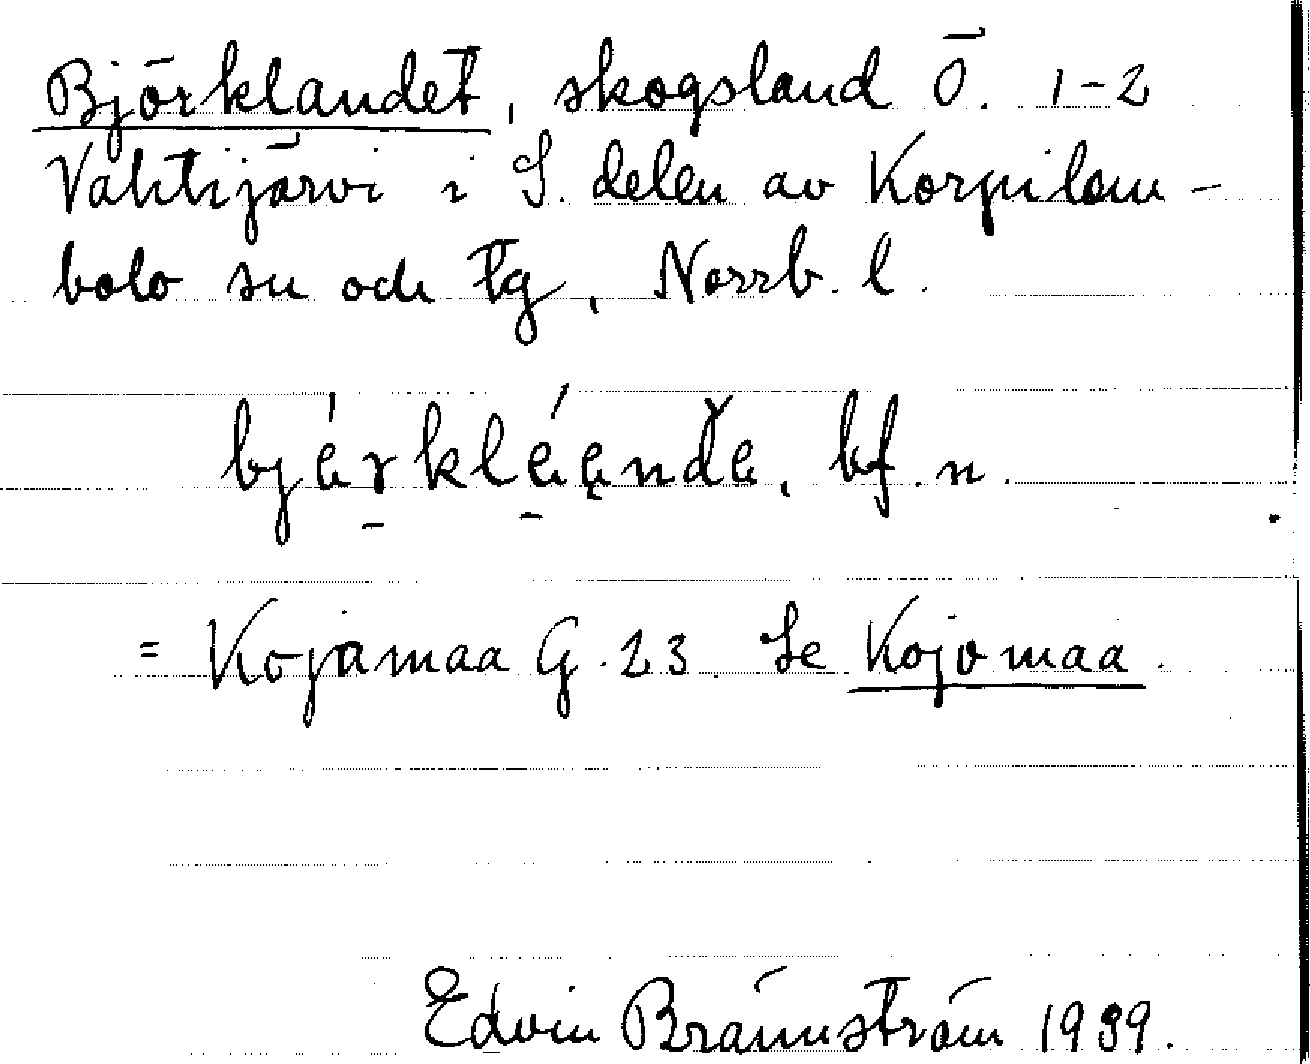 Björklandet, skogsland Ö. 1-2
Vähtijärvi i S. delen av Korpilom-
bolo sn och tg, Norrb. l.
bf. n.
= Kojamaa G. 23. Se Kojomaa.
Edvin Brännström 1939.